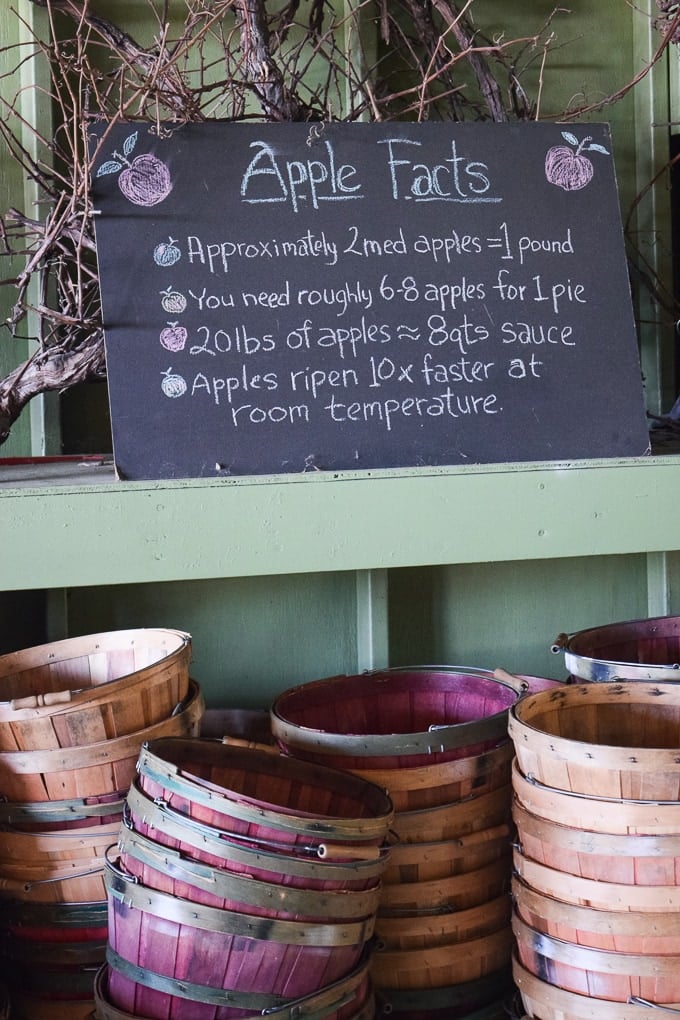 Apple Facts
Approximately 2 med apples = 1 pound
You need roughly 6-8 apples for 1 pie
20lbs of apples ≈ 8qts sauce
Apples ripen 10x faster at
room temperature.